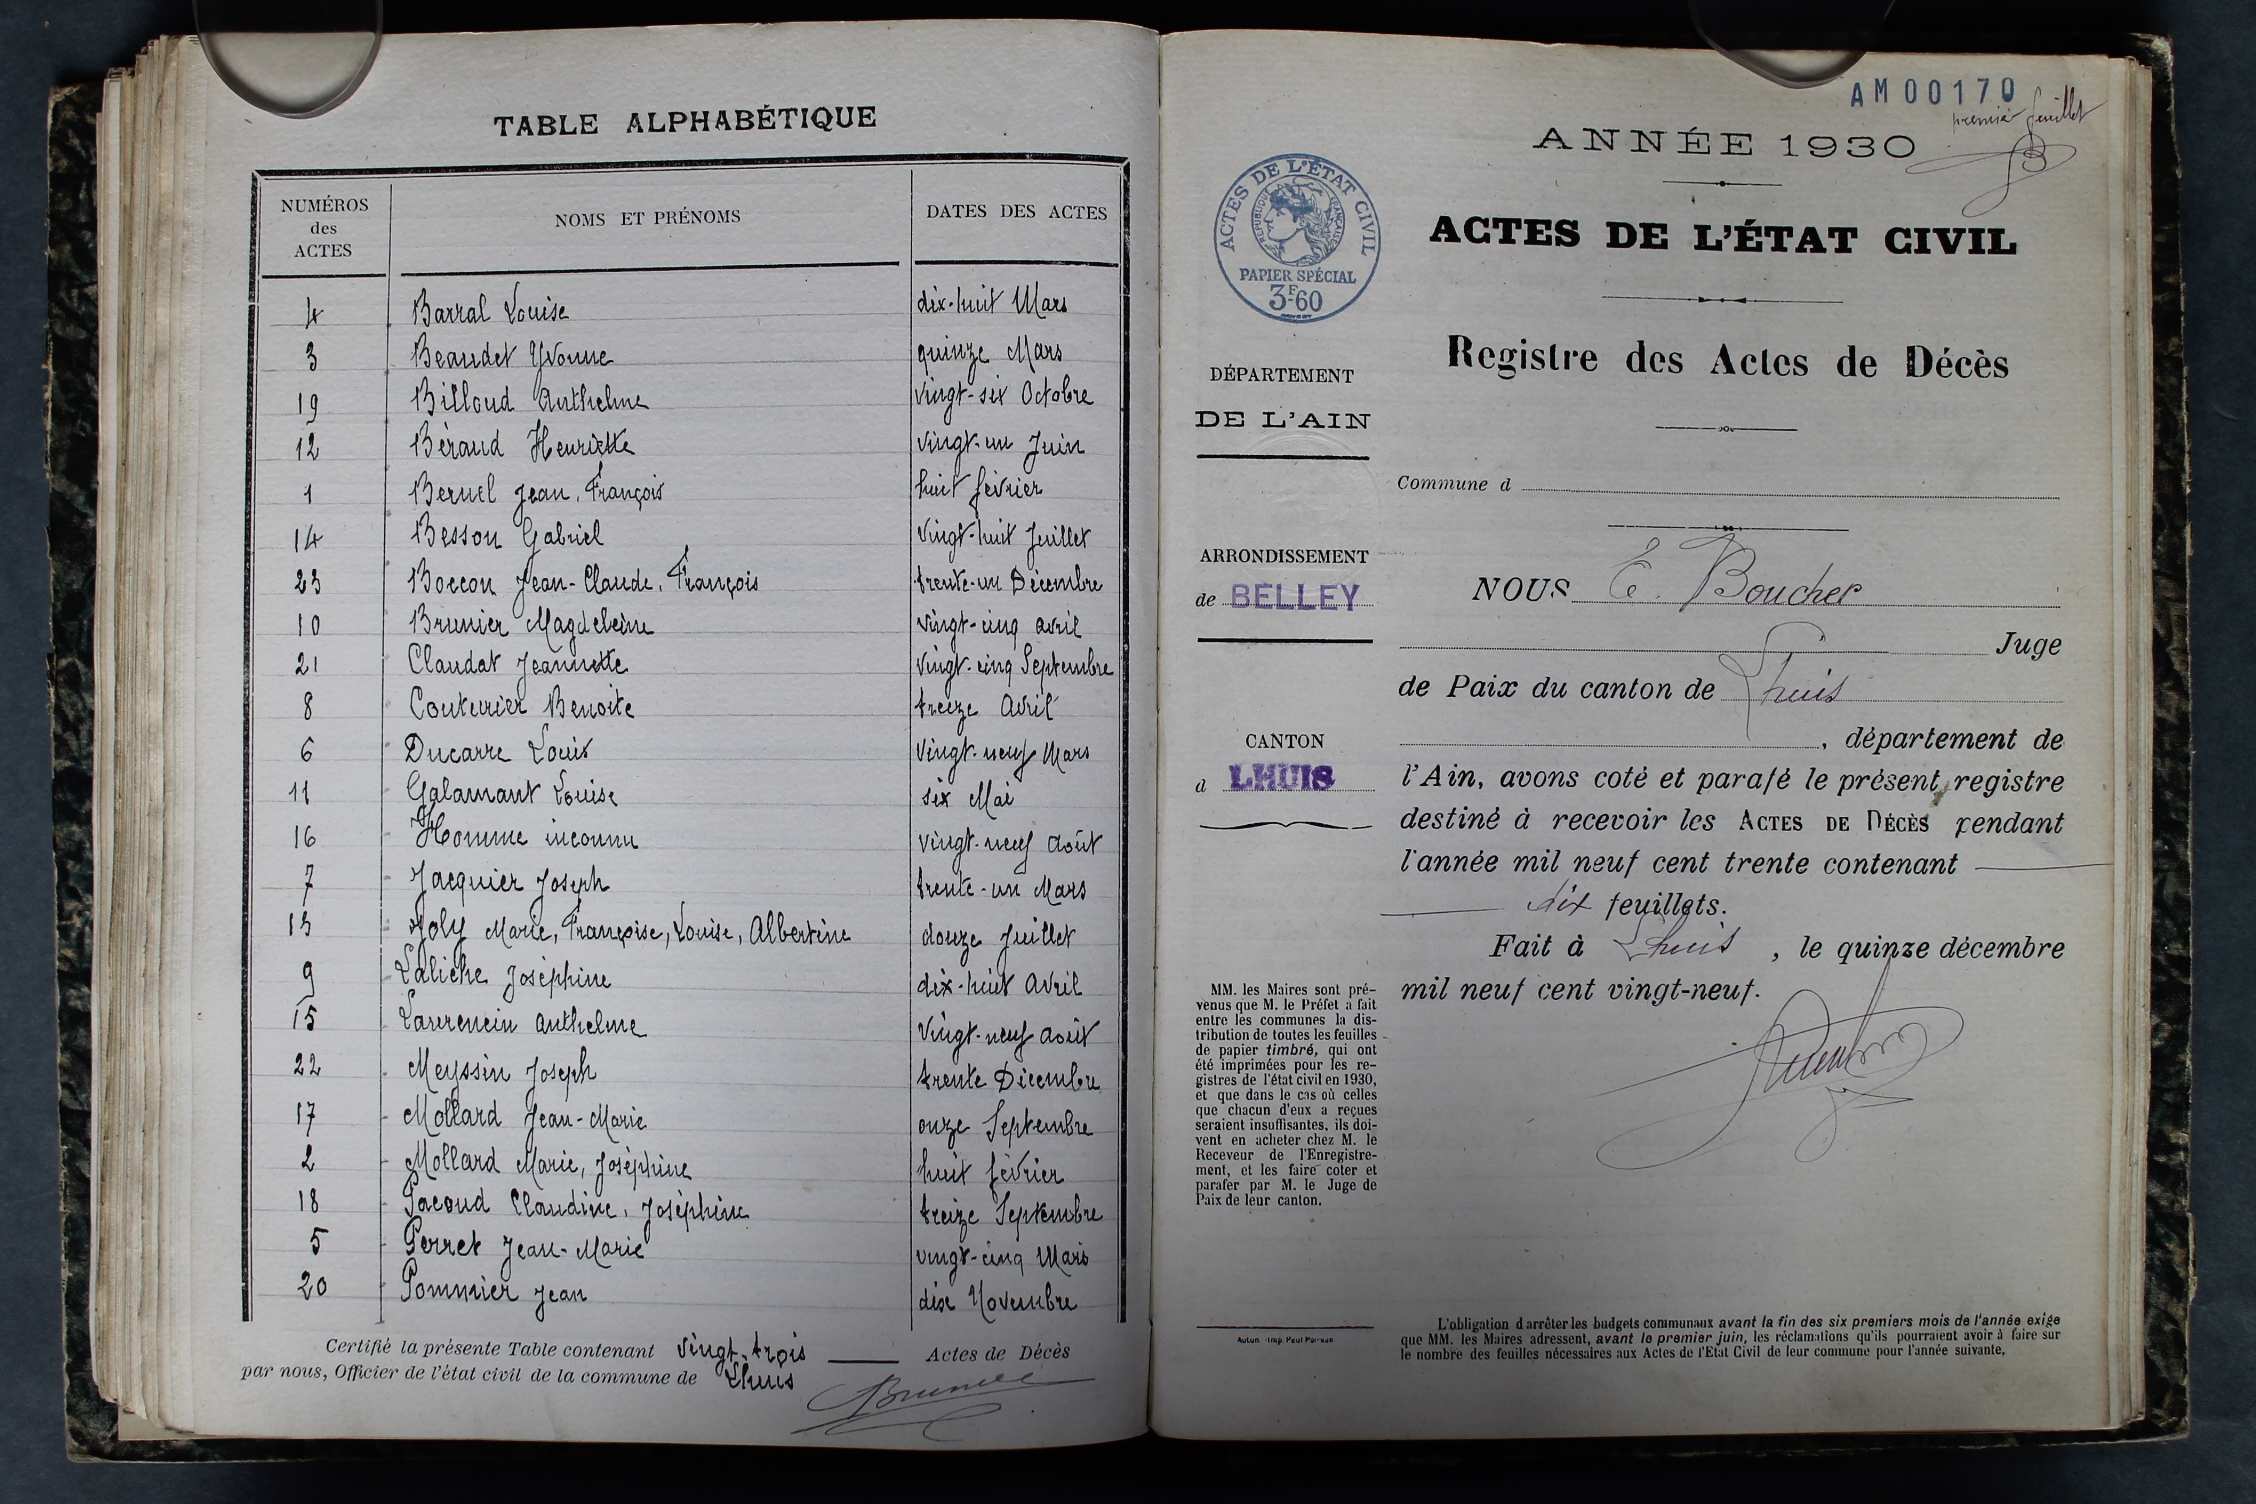 TABLE ALPHABÉTIQUE
NUMÉROS des ACTES
NOMS ET PRÉNOMS
DATES DES ACTES
4 Barral Louise dix-huit Mars
3 Beaudet Yvonne quinze Mars
19 Billoud Anthelme vingt-six Octobre
12 Béraud Henriette vingt-un Juin
1 Bernel Jean, François huit février
14 Besson Gabriel vingt-huit Juillet
23 Boccon Jean-Claude, François trente-un Décembre
10 Brunier Magdeleine vingt-cinq avril
21 Claudat Jeannette vingt-cinq Septembre
8 Couturier Benoite treize Avril
6 Ducarre Louis vingt-neuf Mars
11 Galamant Louise six Mai
16 Homme inconnu vingt-neuf août
7 Jacquier Joseph trente-un Mars
13 Joly Marie, Françoise, Louise, Albertine douze Juillet
9 Laliche Joséphine dix-huit Avril
15 Laurencin Anthelme vingt-neuf août
22 Meyssin Joseph trente Décembre
17 Mollard Jean-Marie onze Septembre
2 Mollard Marie, Joséphine huit février
18 Pacoud Claudine, Joséphine treize Septembre
5 Perret Jean-Marie vingt-cinq Mars
20 Pommier Jean dix Novembre
Certifié la présente Table contenant vingt-trois Actes de Décès
par nous, Officier de l'état civil de la commune de Lhuis
AM00170
premier feuillet
ANNÉE 1930
ACTES DE L'ÉTAT CIVIL
RÉPUBLIQUE FRANÇAISE
PAPIER SPÉCIAL
3F60
ACTES DE L'ÉTAT CIVIL
Registre des Actes de Décès
DÉPARTEMENT
DE L'AIN
Commune d
ARRONDISSEMENT
de BELLEY
CANTON
d LHUIS
NOUS E. Boucher
Juge
de Paix du canton de Lhuis
, département de
l'Ain, avons coté et parafé le présent registre
destiné à recevoir les ACTES DE DÉCÈS pendant
l'année mil neuf cent trente contenant
dix feuillets.
Fait à Lhuis, le quinze décembre
mil neuf cent vingt-neuf.
MM. les Maires sont pré-
venus que M. le Préfet a fait
entre les communes la dis-
tribution de toutes les feuilles
de papier timbré, qui ont
été imprimées pour les re-
gistres de l'état civil en 1930,
et que dans le cas où celles
que chacun d'eux a reçues
seraient insuffisantes, ils doi-
vent en acheter chez M. le
Receveur de l'Enregistre-
ment, et les faire coter et
parafer par M. le Juge de
Paix de leur canton.
Autun Imp. Paul
L'obligation d'arrêter les budgets communaux avant la fin des six premiers mois de l'année exige
que MM. les Maires adressent, avant le premier juin, les réclamations qu'ils pourraient avoir à faire sur
le nombre des feuilles nécessaires aux Actes de l'Etat Civil de leur commune pour l'année suivante.